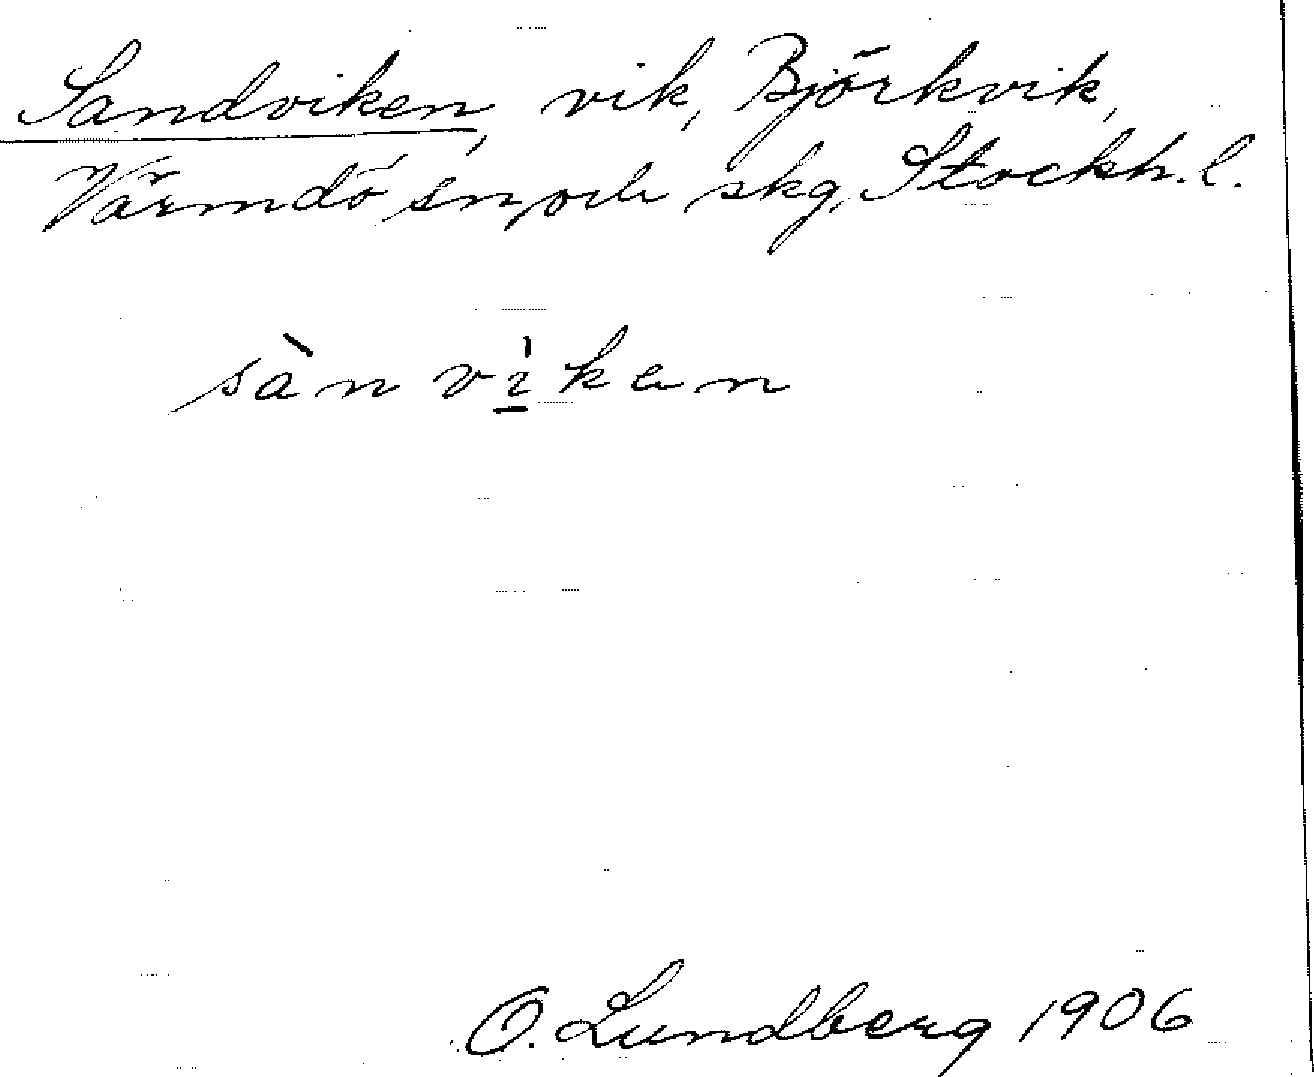 Sandviken, vik, Björkvik,
Värmdö sn och skg, Stockh. l.
sànvìken
O. Lundberg 1906